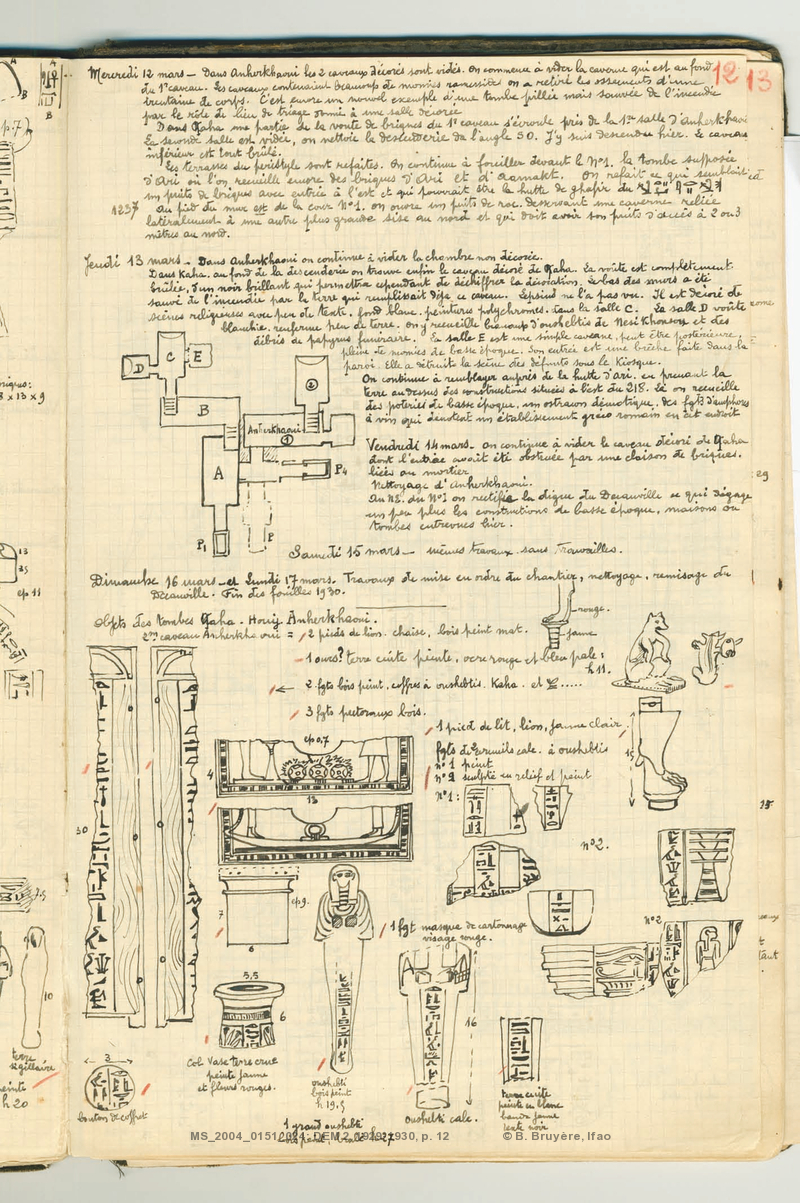 12 13
Mercredi 12 mars - Dans Anherkhaoui les 2 caveaux décorés sont vidés. On commence à vider la caverne qui est au fond
du 1er caveau. Les caveaux contenaient beaucoup de momies ramessides on a retiré les ossements d'une
trentaine de corps. C'est encore un nouvel exemple d'une tombe pillée mais sauvée de l'incendie
par le rôle de lieu de triage donné à une salle décorée
Dans Kaha une partie de la voute de briques du 1er caveau s'écroule près de la 1re salle d'anherkhaoui
La seconde salle est vidée, on nettoie la descenderie de l'angle SO. J'y suis descendu hier. Le caveau
inférieur est tout brûlé.
Les terrasses du péristyle sont refaites. On continue à fouiller devant le N°1. la tombe supposée
d'Ari où l'on recueille encore des briques d'Ari et d'aamakt. On refait ce qui semblait
un puits de briques avec entrée à l'est et qui pourrait être la hutte de ghafir du
1237 au pied du mur est de la cour N°1. on ouvre un puits de roc. desservant une caverne reliée
latéralement à une autre plus grande sise au nord et qui doit avoir son puits d'accès à 2 ou 3
mètres au nord.
Jeudi 13 mars - Dans Anherkhaoui on continue à vider la chambre non décorée.
Dans Kaha. au fond de la descenderie on trouve enfin le caveau décoré de Kaha. La voûte est complètement
brûlée, d'un noir brillant qui permettra cependant de déchiffrer la décoration. Le bas des murs a été
sauvé de l'incendie par la terre qui remplissait déjà ce caveau. Lepsius ne l'a pas vu. Il est décoré de
scènes religieuses avec peu de texte. fond blanc. peintures polychromes. dans la salle C. La salle D voûte
blanchie. renferme peu de terre. On y recueille beaucoup d'oushebtis de Nesikhonsou et des
débris de papyrus funéraire. La salle E est une simple caverne, peut être postérieure,
pleine de momies de basse époque. Son entrée est une brèche faite dans la
paroi. Elle a détruit la scène des défunts sous le Kiosque.
On continue à remblayer auprès de la hutte d'ari. en prenant la
terre au dessus des constructions situées à l'est du 218. Là on recueille
des poteries de basse époque, un ostracon démotique, des fgts d'amphores
à vin qui dénotent un établissement gréco romain en cet endroit
D C E
B
2
Anherkhaoui
1
A
P4
P1
P
Vendredi 14 mars. on continue à vider le caveau décoré de Kaha
dont l'entrée avait été obstruée par une cloison de briques.
liées au mortier
Nettoyage d'anherkhaoui.
Au NE. du N°1 on rectifie la digue du Decauville ce qui dégage
un peu plus les constructions de basse époque, maisons ou
tombes entrevues hier.
Samedi 15 mars - mêmes travaux. sans trouvailles.
Dimanche 16 mars - et Lundi 17 mars. Travaux de mise en ordre du chantier, nettoyage, remisage du
Decauville. Fin des fouilles 1930.
Objets des tombes Kaha - Houij Anherkhaoui.
2me caveau Anherkhaoui = 2 pieds de lion. chaise, bois peint mat.
rouge.
jaune
1 ours? terre cuite peinte, ocre rouge et bleu pale:
h 11.
2 fgts bois peint, coffres à oushebtis. Kaha. et
3 fgts pectoraux bois.
1 pied de lit, lion, jaune clair.
fgts de cercueils calc. à oushebtis
n° 1 peint
n° 2 sculpté en relief et peint
ep 0,7
4
13
15
n° 1:
n° 2.
30
ep 9.
7
6
1 fgt masque de cartonnage
visage rouge.
n° 2
5,5
6
16
3
bouton de coffret
Col Vase terre crue
peinte jaune
et fleurs rouges.
oushebti
bois peint
h 19,5
oushebti calc.
terre cuite
peinte en blanc
bande jaune
texte noir
1 grand oushebti
MS_2004_0151_024, DEM 2, 1929-1930, p. 12
© B. Bruyère, Ifao
p.7)
A
B
13
25
ep 11
10
terre
sigillaire
h 20